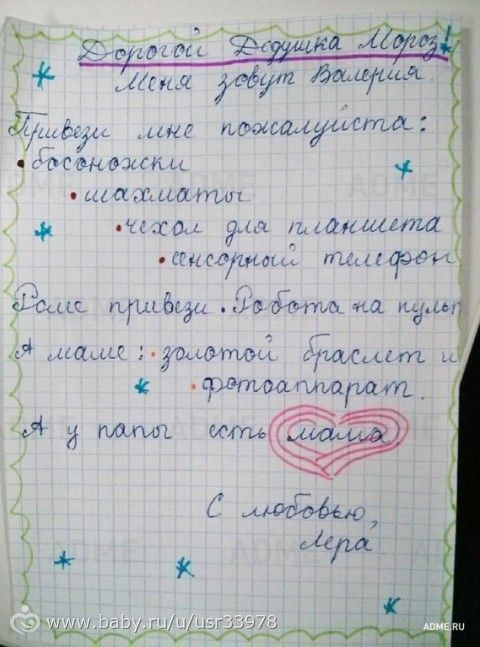 Дорогой Дедушка Мороз!
Меня зовут Валерия.
Привези мне пожалуйста:
• босоножки
• шахматы
• чехол для планшета
• сенсорный телефон
Роме привези • Робота на пульт
А маме: • золотой браслет и
• фотоаппарат.
А у папы есть мама.
С любовью,
Лера
www.baby.ru/u/usr33978
ADME.RU